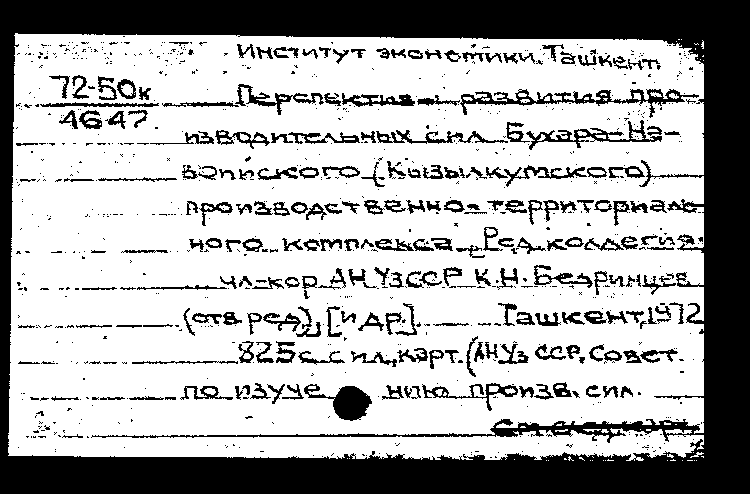 Институт экономики. Ташкент
72-50к
4647.
Перспективы развития про-
изводительных сил Бухара-На-
воийского (Кызылкумского)
производственно-территориаль-
ного комплекса. Ред. коллегия:
чл-кор АН УзССР К.Н. Бедринцев
(отв. ред), [и др]. Ташкент, 1972
825 с. с ил., карт. (АН Уз ССР, Совет
по изучению произв. сил.